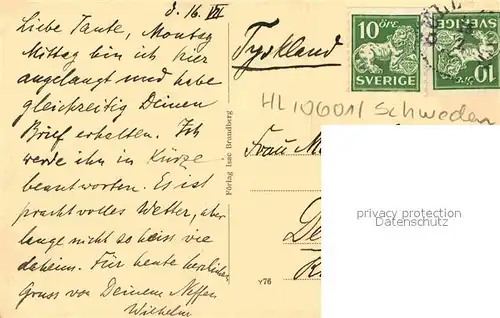 d. 16. VII
Liebe Tante, Montag
Mittag bin ich hier
angelangt und habe
gleichzeitig Deinen
Brief erhalten. Ich
werde ihn in Kürze
beantworten. Es ist
prachtvolles Wetter, aber
lange nicht so heiss wie
daheim. Für heute herzlichen
Gruss von Deinem Neffen
Wilhelm
Förlag Isac Brandberg
Tyskland
10 ÖRE
SVERIGE
10
SVERIGE
HL10601/ Schweden
Frau
privacy protection
Datenschutz
Y76